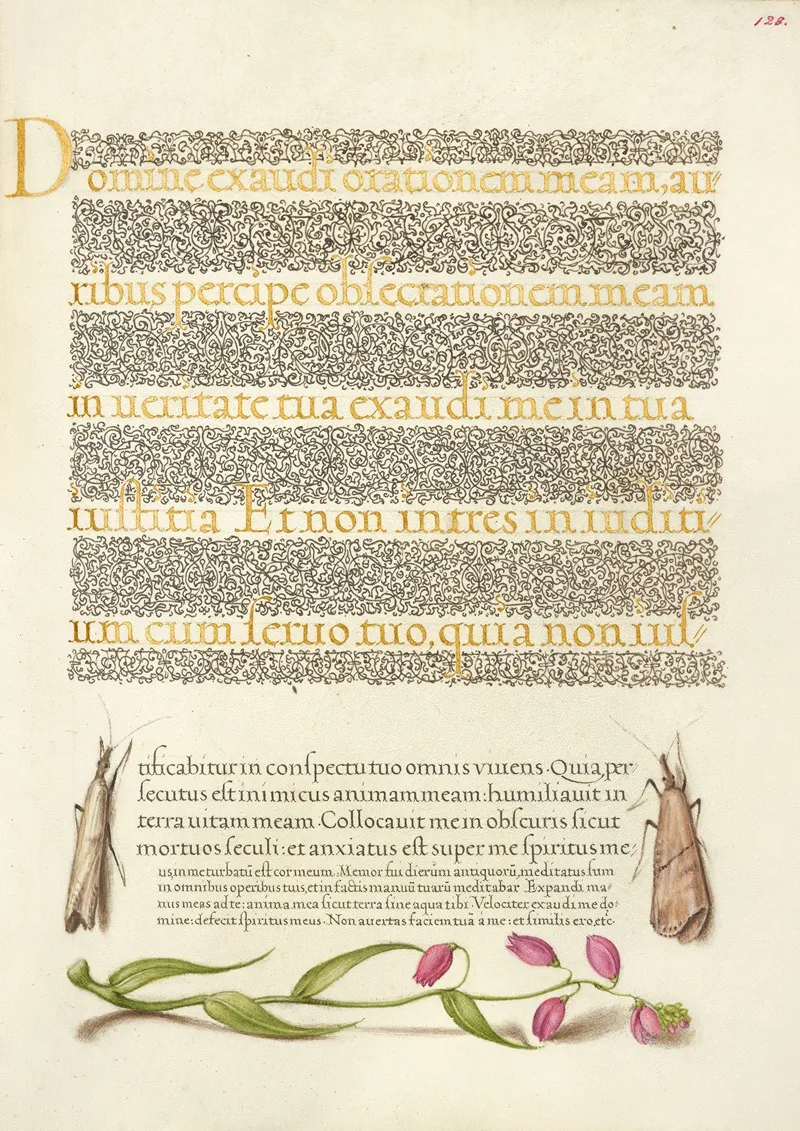 128.
Domine exaudi orationem meam, au⸗
ribus percipe obſecrationem meam
in ueritate tua exaudi me in tua
iuſtitia Et non intres in iuditi⸗
um cum ſeruo tuo, quia non iuſ⸗
tificabitur in conſpectu tuo omnis viuens. Quia per⸗
ſecutus eſt inimicus animam meam: humiliauit in
terra uitam meam. Collocauit me in obſcuris ſicut
mortuos ſeculi: et anxiatus eſt super me ſpiritus me⸗
us, in me turbatū eſt cor meum. Memor fui dierūm antiquorū, meditatus ſum
in omnibus operibus tuis, et in factis manuū tuarū meditabar. Expandi ma⸗
nus meas ad te: anima mea ſicut terra ſine aqua tibi. Velociter exaudi me do⸗
mine: defecit ſpiritus meus. Non auertas faciem tuā á me: et ſimilis ero, etc.